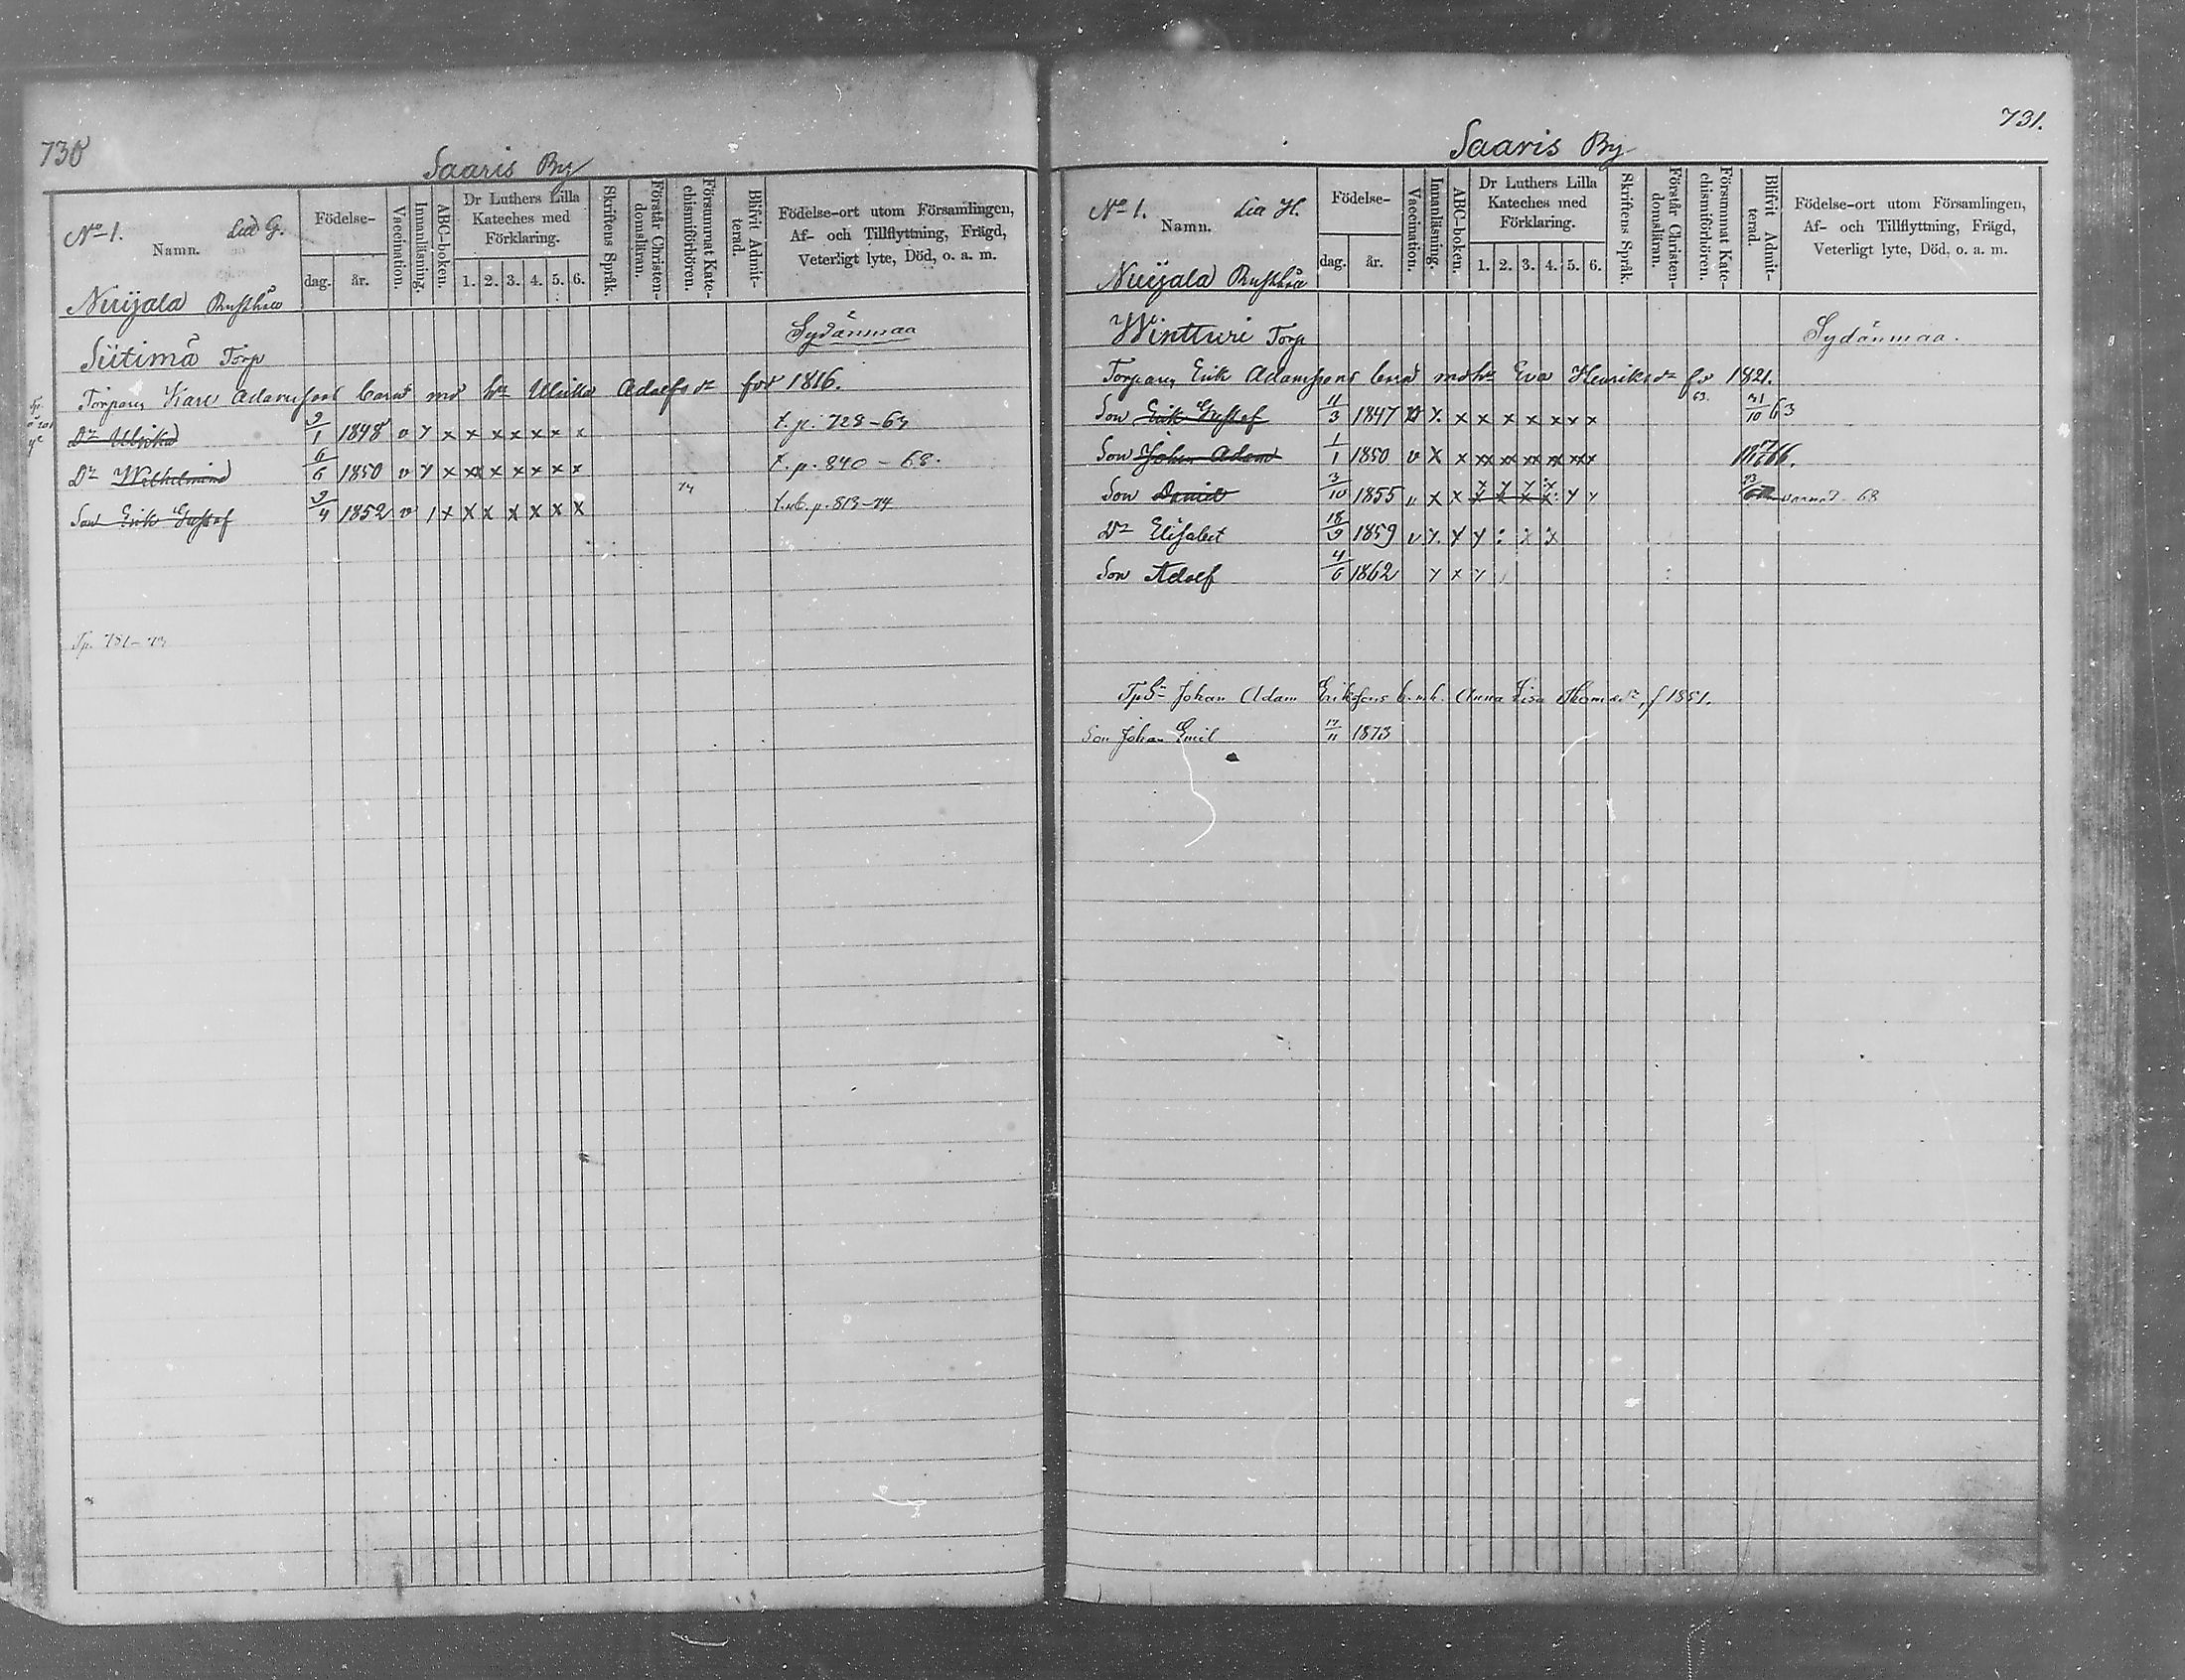 730
Saaris By
No 1. Lit G.
Namn.
Födelse-
dag.
år.
Vaccination.
Innanläsning.
ABC-boken.
Dr Luthers Lilla
Kateches med
Förklaring.
1. 2. 3. 4. 5. 6.
Skriftens Språk.
Förstår Christen-
domsläran.
Försummat Kate-
chismiförhören.
Blifvit Admit-
terad.
Födelse-ort utom Församlingen,
Af- och Tillflyttning, Frägd,
Veterligt lyte, Död, o. a. m.
Nuijala
Siitimä Torp
Sydänmaa
Torparn Karl Adamsson barn md h. Ulrika Adolfsdr född 1816.
Dr Ulrika 9/1 1848 v y x x x x x x x t. p. 728-69
Dr Wilhelmina 6/6 1850 v y x xx x x x x x t. p. 840 - 68.
Son Erik Gustaf 9/4 1852 v / x x x x x x x 74 p. 813-74
Tp. 781-73
731.
Saaris By
No 1. Lit H.
Namn.
Födelse-
dag.
år.
Vaccination.
Innanläsning.
ABC-boken.
Dr Luthers Lilla
Kateches med
Förklaring.
1. 2. 3. 4. 5. 6.
Skriftens Språk.
Förstår Christen-
domsläran.
Försummat Kate-
chismiförhören.
Blifvit Admit-
terad.
Födelse-ort utom Församlingen,
Af- och Tillflyttning, Frägd,
Veterligt lyte, Död, o. a. m.
Nuijala
Wintturi Torp
Sydänmaa.
Torparn Erik Adamssons barn md h. Eva Henriksdr fö 1821.
Son Erik Gustaf 11/3 1847 x x x x x x x 63. 31/10 63
Son Johan Adam 1/1 1850 v x x xx xx xx xx xxx
Son Daniel 3/10 1855 v x x x x x x y y 68
Dr Elisabet 18/9 1859 v y. y y : x x
Son Adolf 4/6 1862 y x y
TpSn Johan Adam Erikssons b. m h. Anna Lisa Thomasdr, f 1851.
Son Johan Emil 17/11 1873